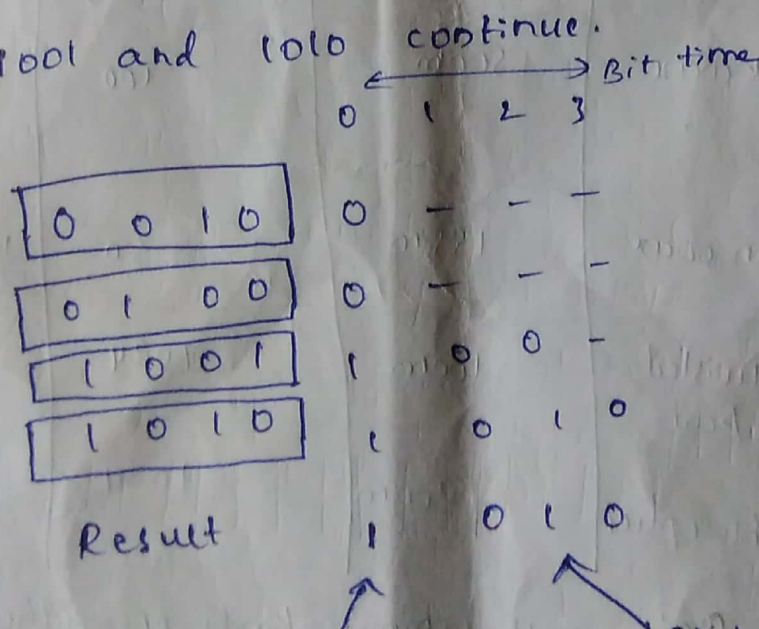 1001 and 1010 continue.
Bit time
0 1 2 3
0 0 1 0 0 - - -
0 1 0 0 0 - - -
1 0 0 1 1 0 0 -
1 0 1 0 1 0 1 0
Result 1 0 1 0